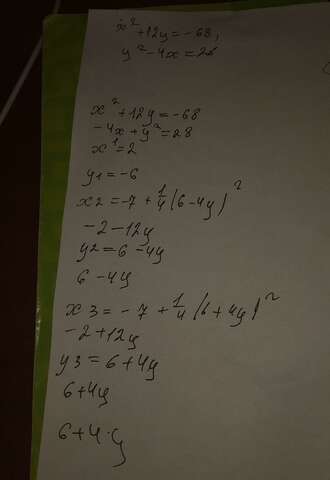 x² + 12y = -68,
y² - 4x = 28
x² + 12y = -68
-4x + y² = 28
x¹ = 2
y1 = -6
x2 = -7 + 1/4 (6-4y)²
-2-12y
y2 = 6-4y
6-4y
x3 = -7 + 1/4 (6+4y)²
-2+12y
y3 = 6+4y
6+4y
6+4·y